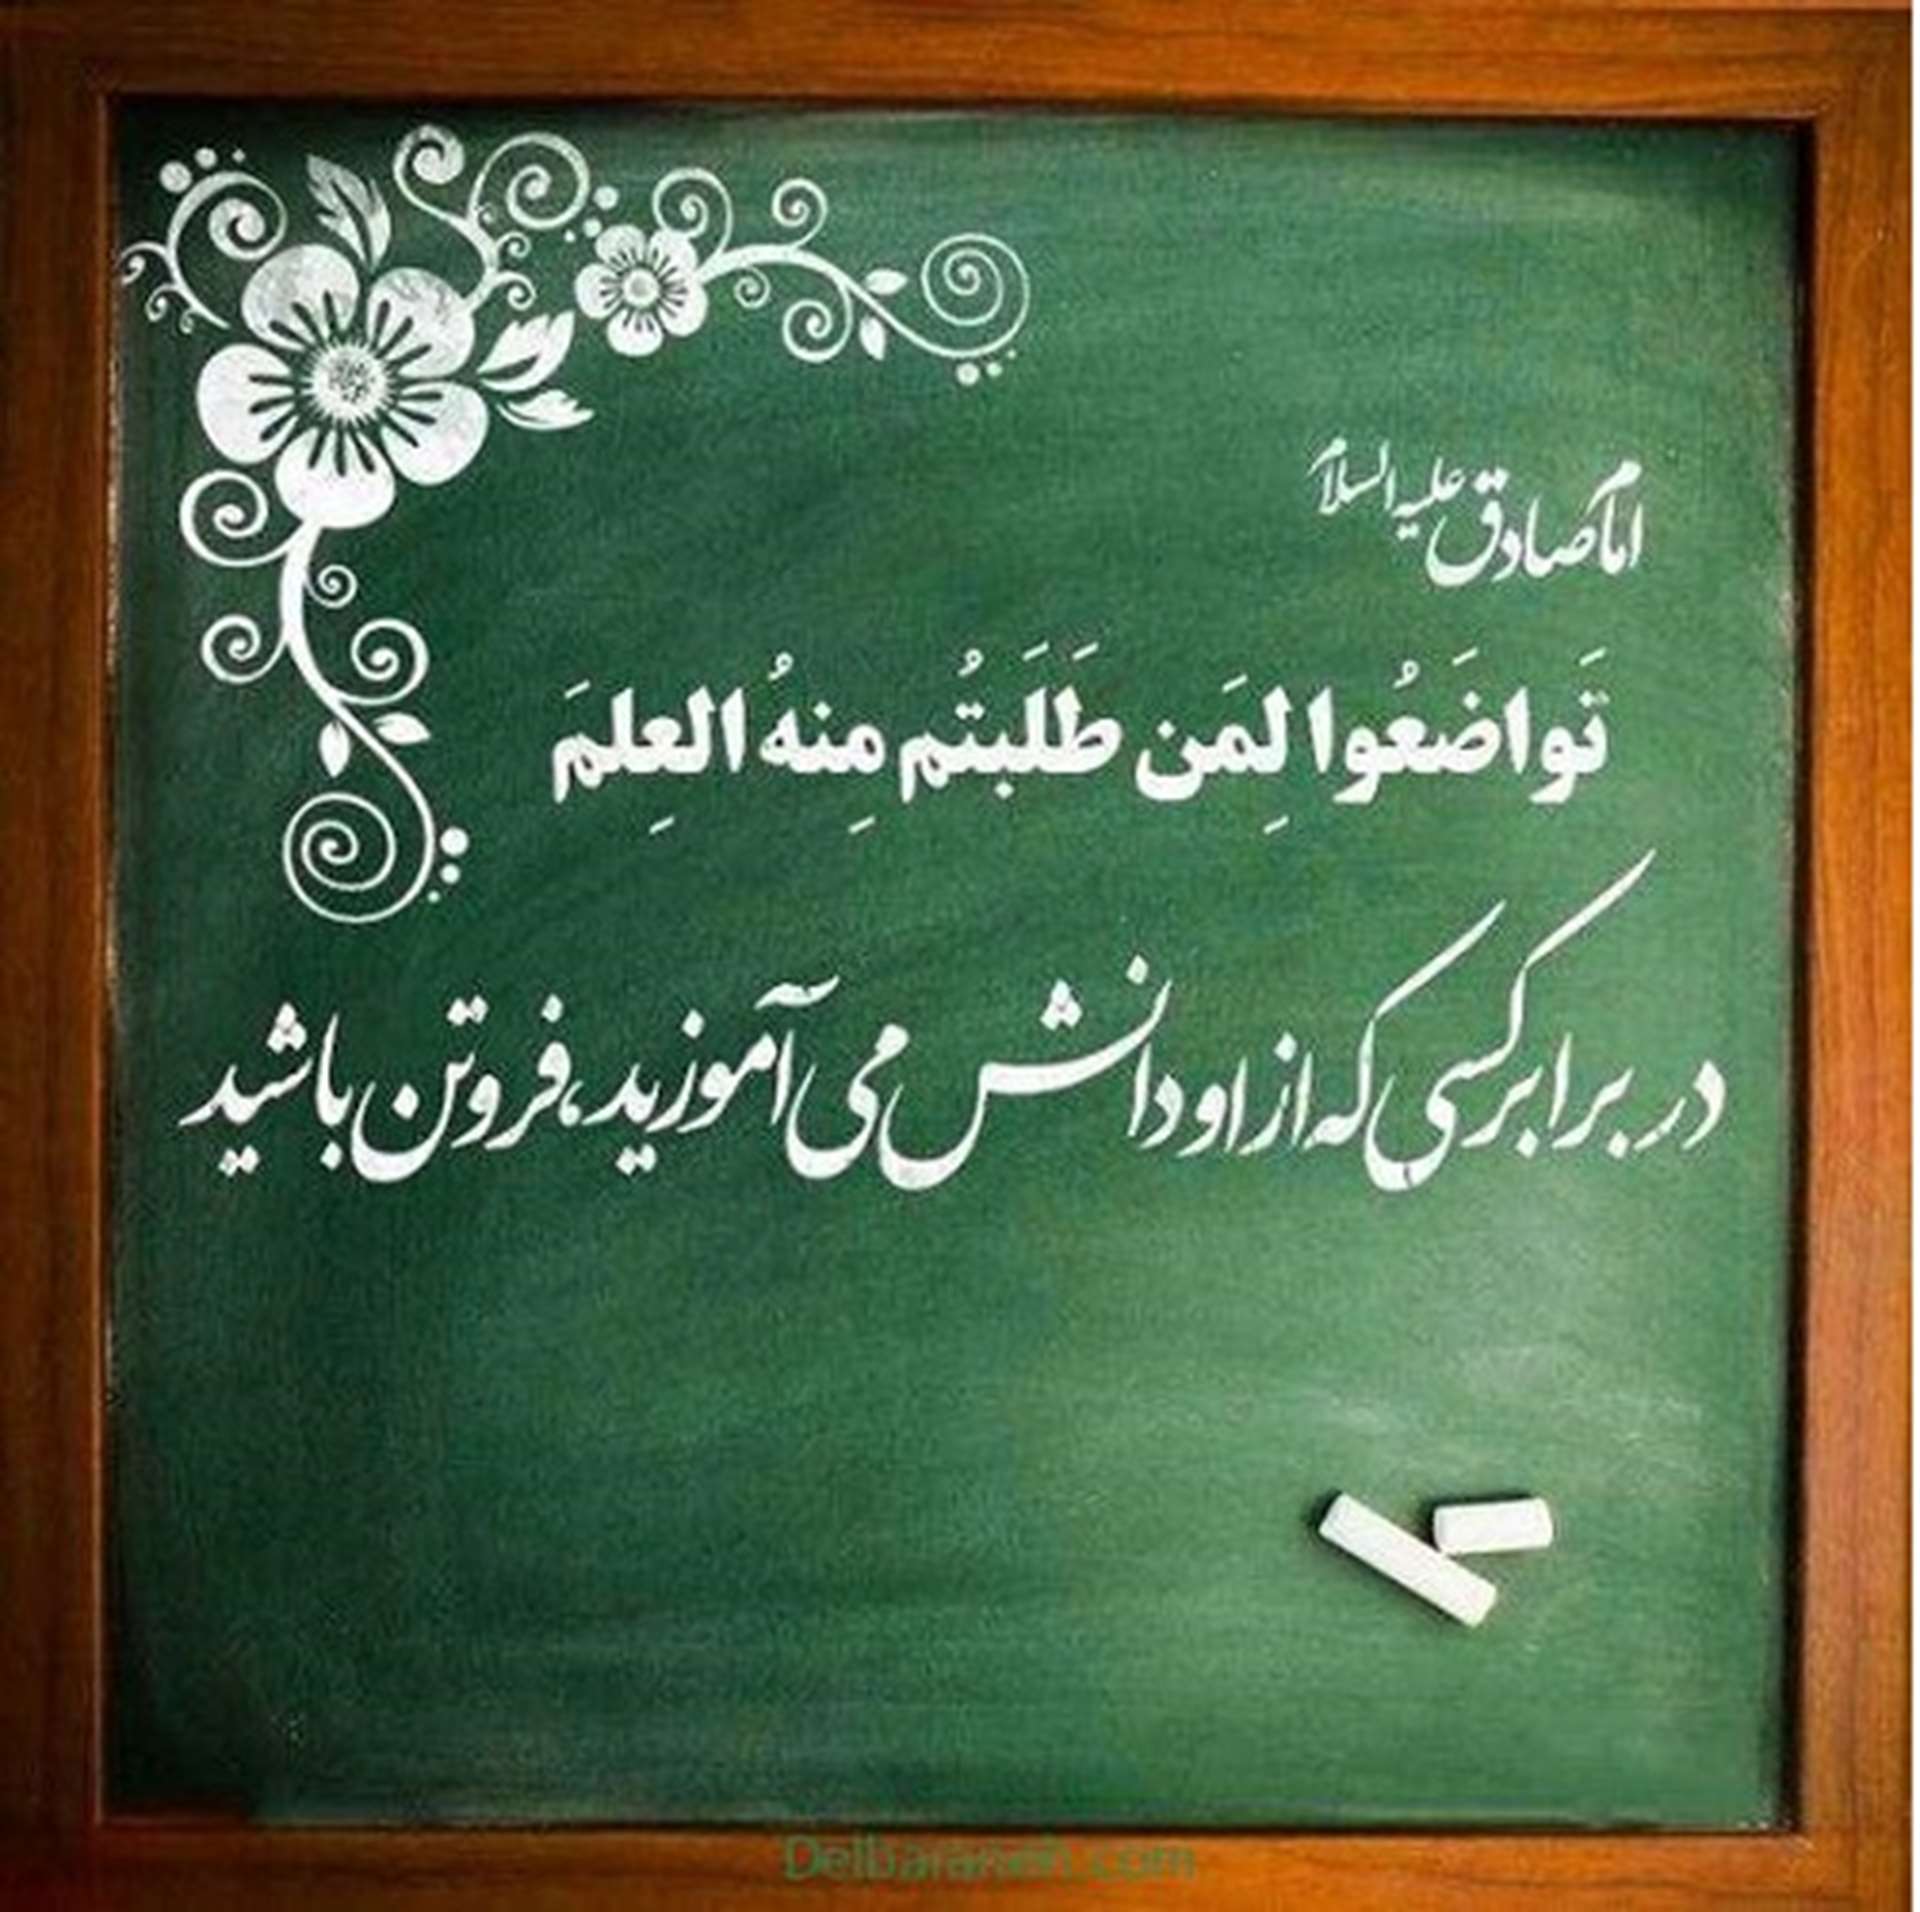 امام صادق علیه السلام
تَواضَعُوا لِمَن طَلَبتُم مِنهُ العِلمَ
در برابر کسی که از او دانش می آموزید، فروتن باشید
Delbaraneh.com